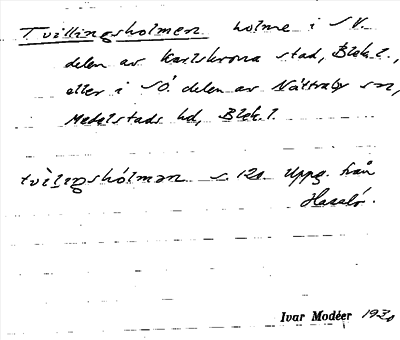 Tvillingsholmen holme i SV.
delen av Karlskrona stad, Blek. l.,
eller i SÖ. delen av Nättraby sn,
Medelstads hd, Blek. l.
tvìlingshólmən s. 12. Uppg. från
Hasslö.
Ivar Modéer 193